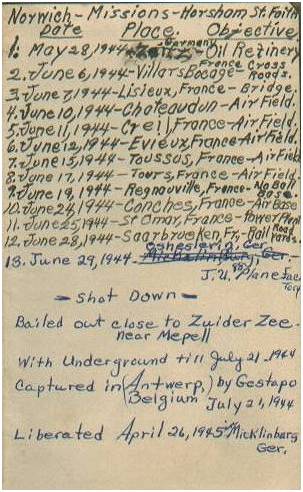 Norwich - Missions - Horsham St. Faith
Date Place. Objective
1. May 28, 1944 - Germany Oil Refinery
2. June 6, 1944 - Villars Bocage - France Cross Roads.
3. June 7, 1944 - Lisieux, France - Bridge.
4. June 10, 1944 - Chateaudun - Air Field.
5. June 11, 1944 - Creil, France - Air Field.
6. June 12, 1944 - Evieux, France - Air Field.
7. June 15, 1944 - Toussus, France - Air Field
8. June 17, 1944 - Tours, France - Air Field.
9. June 19, 1944 - Regnauville, France - No Ball Base.
10. June 24, 1944 - Conches, France - Air Base
11. June 25, 1944 - St Omar, France - Power Plant
12. June 28, 1944 - Saarbrucken, Fr, - Rail Road Yards.
13. June 29, 1944 - Ger.
J.U. Plane Factory
- Shot Down -
Bailed out close to Zuider Zee
near Mepell
With Underground till July 21, 1944
Captured in (Antwerp,) by Gestapo
Belgium July 21, 1944
Liberated April 26, 1945 Micklinburg
Ger.